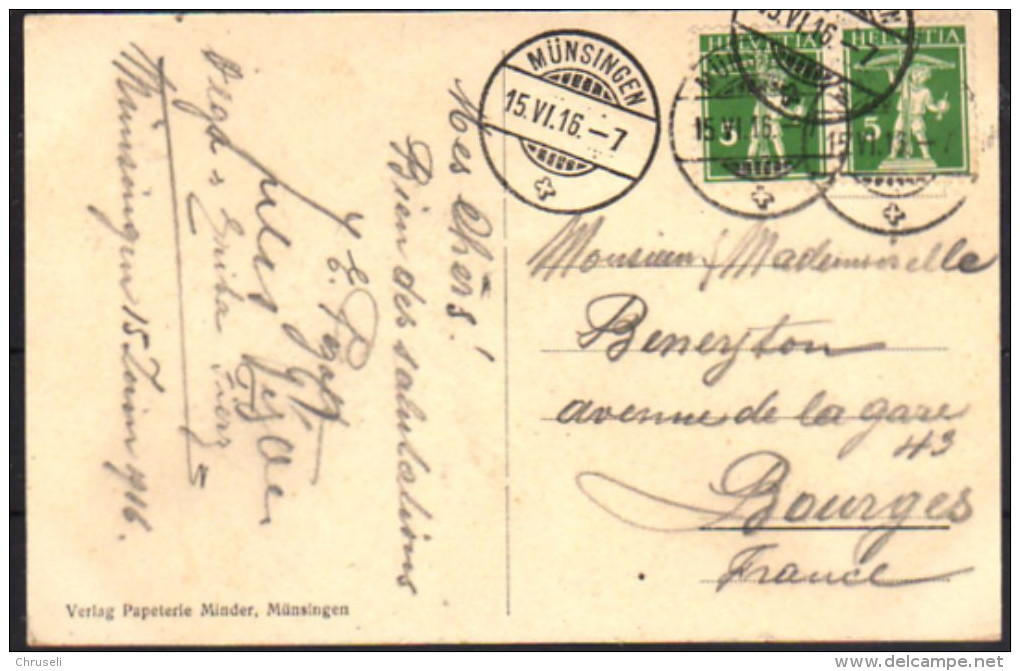 MÜNSINGEN
15.VI.16.–7
HELVETIA
5
15.VI.16.–7
HELVETIA
5
15.VI.16.–7
15.VI.16.–7
Mes Chers!
Bien des salutations
Münsingen 15 Juin 1916.
Monsieur / Mademoiselle
Beneyton
avenue de la gare
43
Bourges
France
Verlag Papeterie Minder, Münsingen
Chruseli
www.delcampe.net